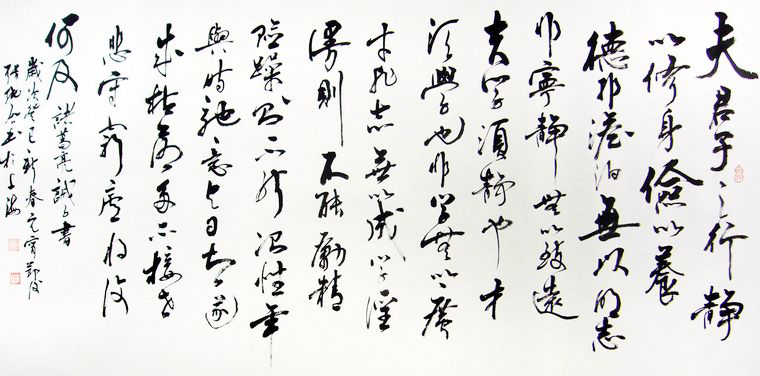 夫君子之行靜
以修身儉以養
德非澹泊無以明志
非寧靜無以致遠
夫學須靜也才
須學也非學無以廣
才非志無以成學淫
漫則不能勵精
險躁則不能冶性年
與時馳意與日去遂
成枯落多不接世
悲守窮廬將復
何及 諸葛亮誡子書
歲次癸巳新春元宵節後
書於上海